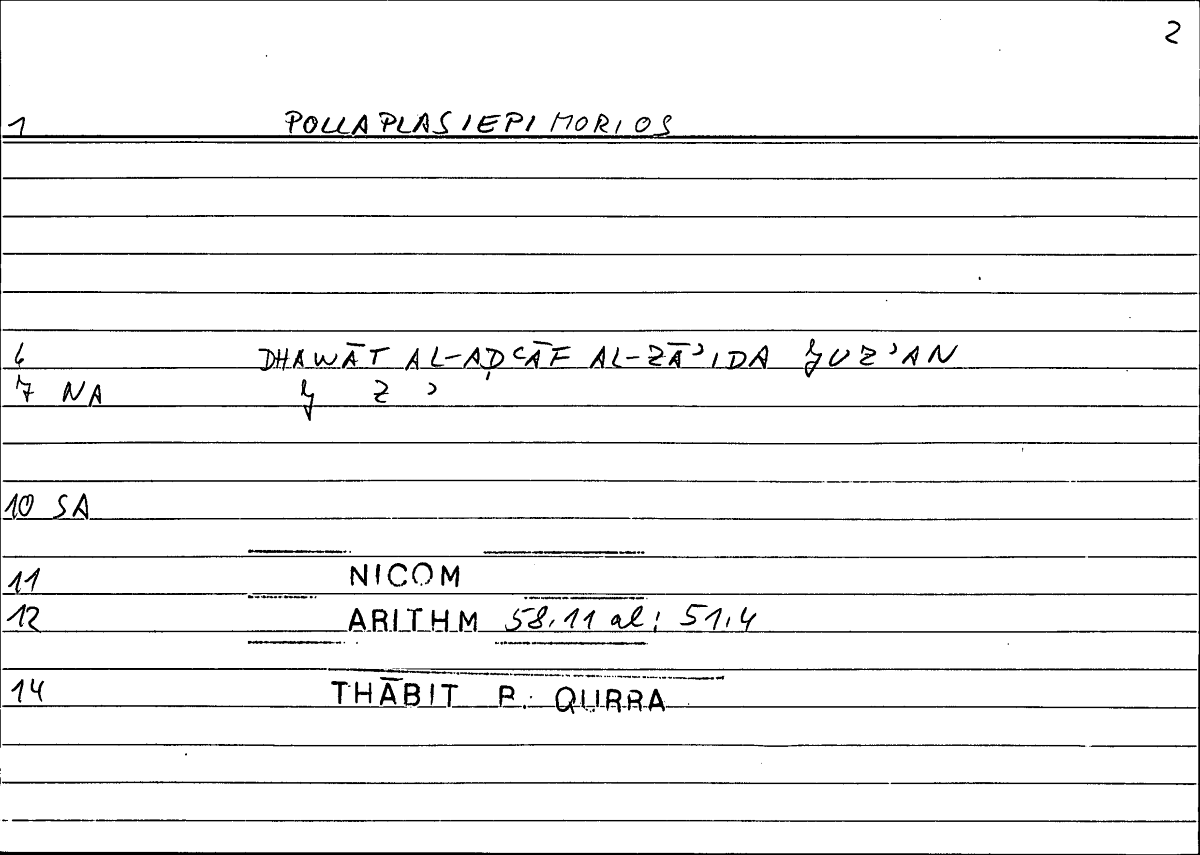 2
1 POLLAPLASIEPIMORIOS
6 DHAWĀT AL-AḌʿĀF AL-ZĀʾIDA ǦUZʾAN
7 NA Ǧ Z ʾ
10 SA
11 NICOM
12 ARITHM 58,11 al; 51,4
14 THĀBIT B. QURRA